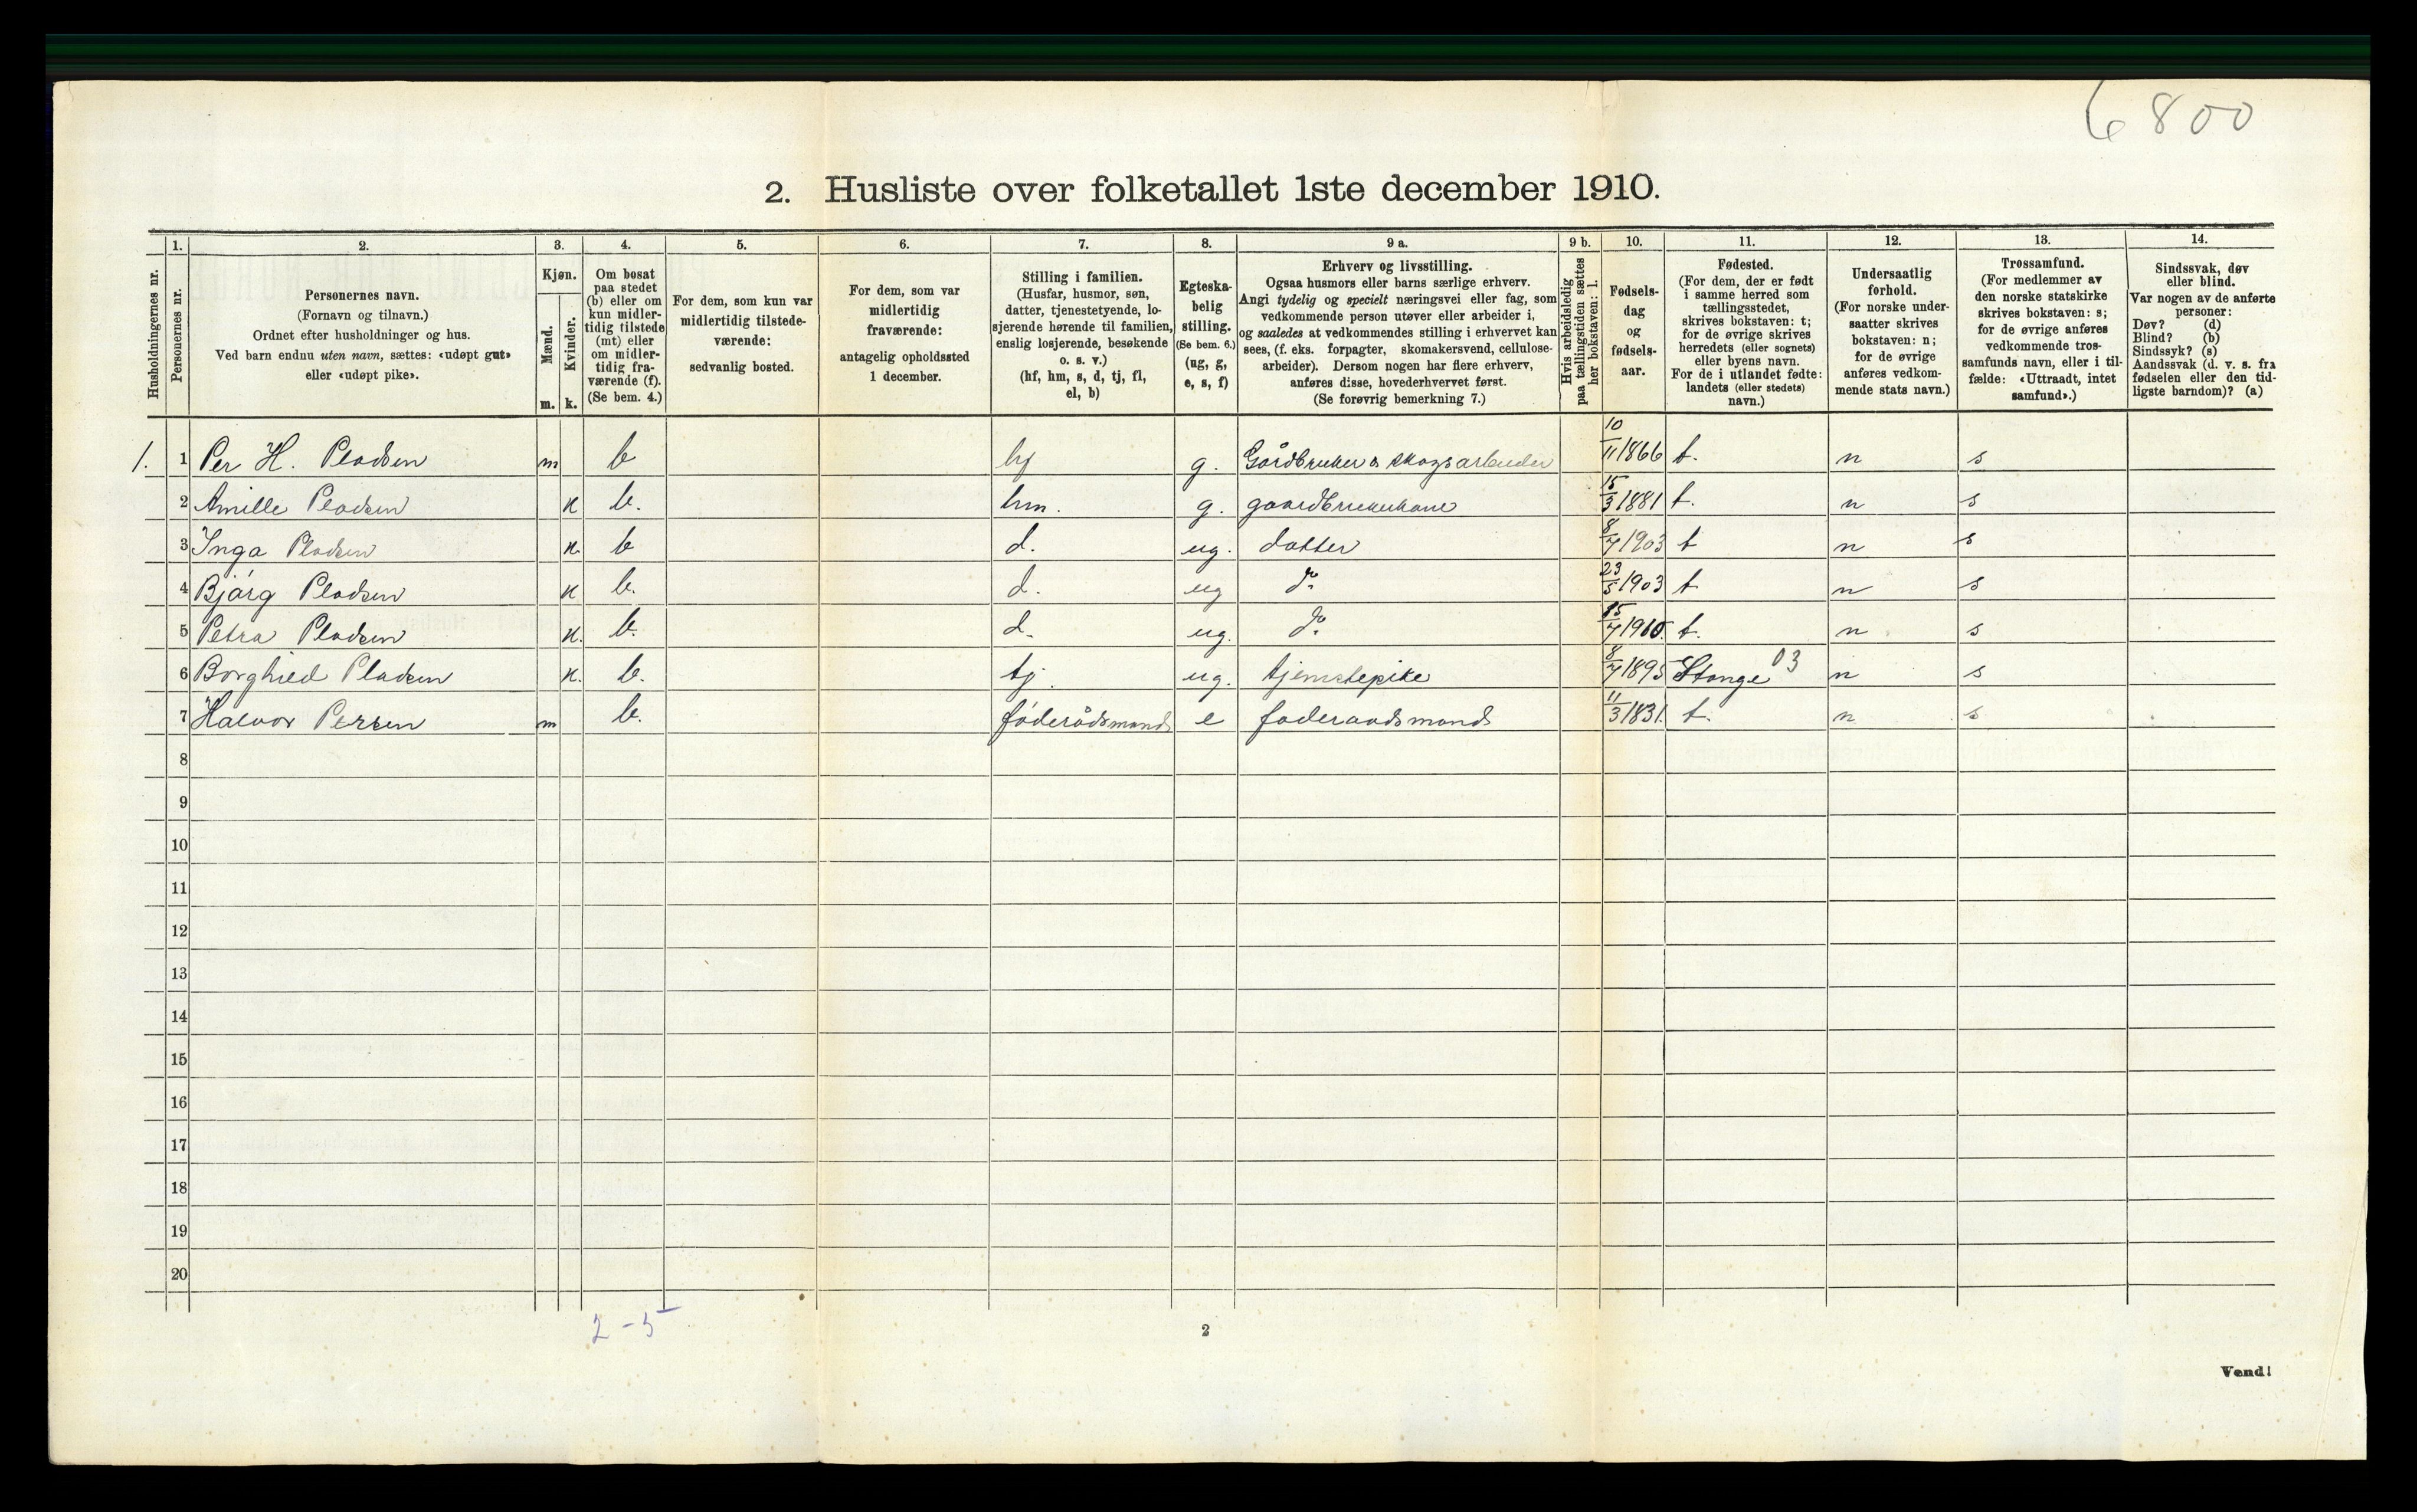 6800
2. Husliste over folketallet 1ste december 1910.
Husholdningernes nr.
1. Personernes nr.
2. Personernes navn.
(Fornavn og tilnavn.)
Ordnet efter husholdninger og hus.
Ved barn endnu uten navn, sættes: «udøpt gut»
eller «udøpt pike».
3. Kjøn.
Mænd. m.
Kvinder. k.
4. Om bosat
paa stedet
(b) eller om
kun midler-
tidig tilstede
(mt) eller
om midler-
tidig fra-
værende (f).
(Se bem. 4.)
5. For dem, som kun var
midlertidig tilstede-
værende:
sedvanlig bosted.
6. For dem, som var
midlertidig
fraværende:
antagelig opholdssted
1 december.
7. Stilling i familien.
(Husfar, husmor, søn,
datter, tjenestetyende, lo-
sjerende hørende til familien,
enslig losjerende, besøkende
o. s. v.)
(hf, hm, s, d, tj, fl,
el, b)
8. Egteska-
belig
stilling.
(Se bem. 6.)
(ug, g,
e, s, f)
9 a. Erhverv og livsstilling.
Ogsaa husmors eller barns særlige erhverv.
Angi tydelig og specielt næringsvei eller fag, som
vedkommende person utøver eller arbeider i,
og saaledes at vedkommendes stilling i erhvervet kan
sees, (f. eks. forpagter, skomakersvend, cellulose-
arbeider). Dersom nogen har flere erhverv,
anføres disse, hovederhvervet først.
(Se forøvrig bemerkning 7.)
9 b. Hvis arbeidsledig
paa tællingstiden sættes
her bokstaven: l.
10. Fødsels-
dag
og
fødsels-
aar.
11. Fødested.
(For dem, der er født
i samme herred som
tællingsstedet,
skrives bokstaven: t;
for de øvrige skrives
herredets (eller sognets)
eller byens navn.
For de i utlandet fødte:
landets (eller stedets)
navn.)
12. Undersaatlig
forhold.
(For norske under-
saatter skrives
bokstaven: n;
for de øvrige
anføres vedkom-
mende stats navn.)
13. Trossamfund.
(For medlemmer av
den norske statskirke
skrives bokstaven: s;
for de øvrige anføres
vedkommende tros-
samfunds navn, eller i til-
fælde: «Uttraadt, intet
samfund».)
14. Sindssvak, døv
eller blind.
Var nogen av de anførte
personer:
Døv? (d)
Blind? (b)
Sindssyk? (s)
Aandssvak (d. v. s. fra
fødselen eller den tid-
ligste barndom)? (a)
1. 1 Per H. Pladsen m b hf g. Gårdbruker & skogsarbeider 10/11 1866 t. n s
2 Amille Pladsen k b. hm. g. gaardbrukerkone 15/3 1881 t. n s
3 Inga Pladsen k. b d. ug. datter 8/7 1903 t n s
4 Bjårg Pladsen k b. d. ug do 23/5 1903 t n s
5 Petra Pladsen k. b. d. ug. do 15/7 1910. t. n s
6 Borghild Pladsen k. b. tj. ug. tjenestepike 8/7 1895 Stange 03 n s
7 Halvor Persen m b. føderådsmand e føderaadsmand 11/3 1831. t. n s
8
9
10
11
12
13
14
15
16
17
18
19
20
2-5
2
Vend!